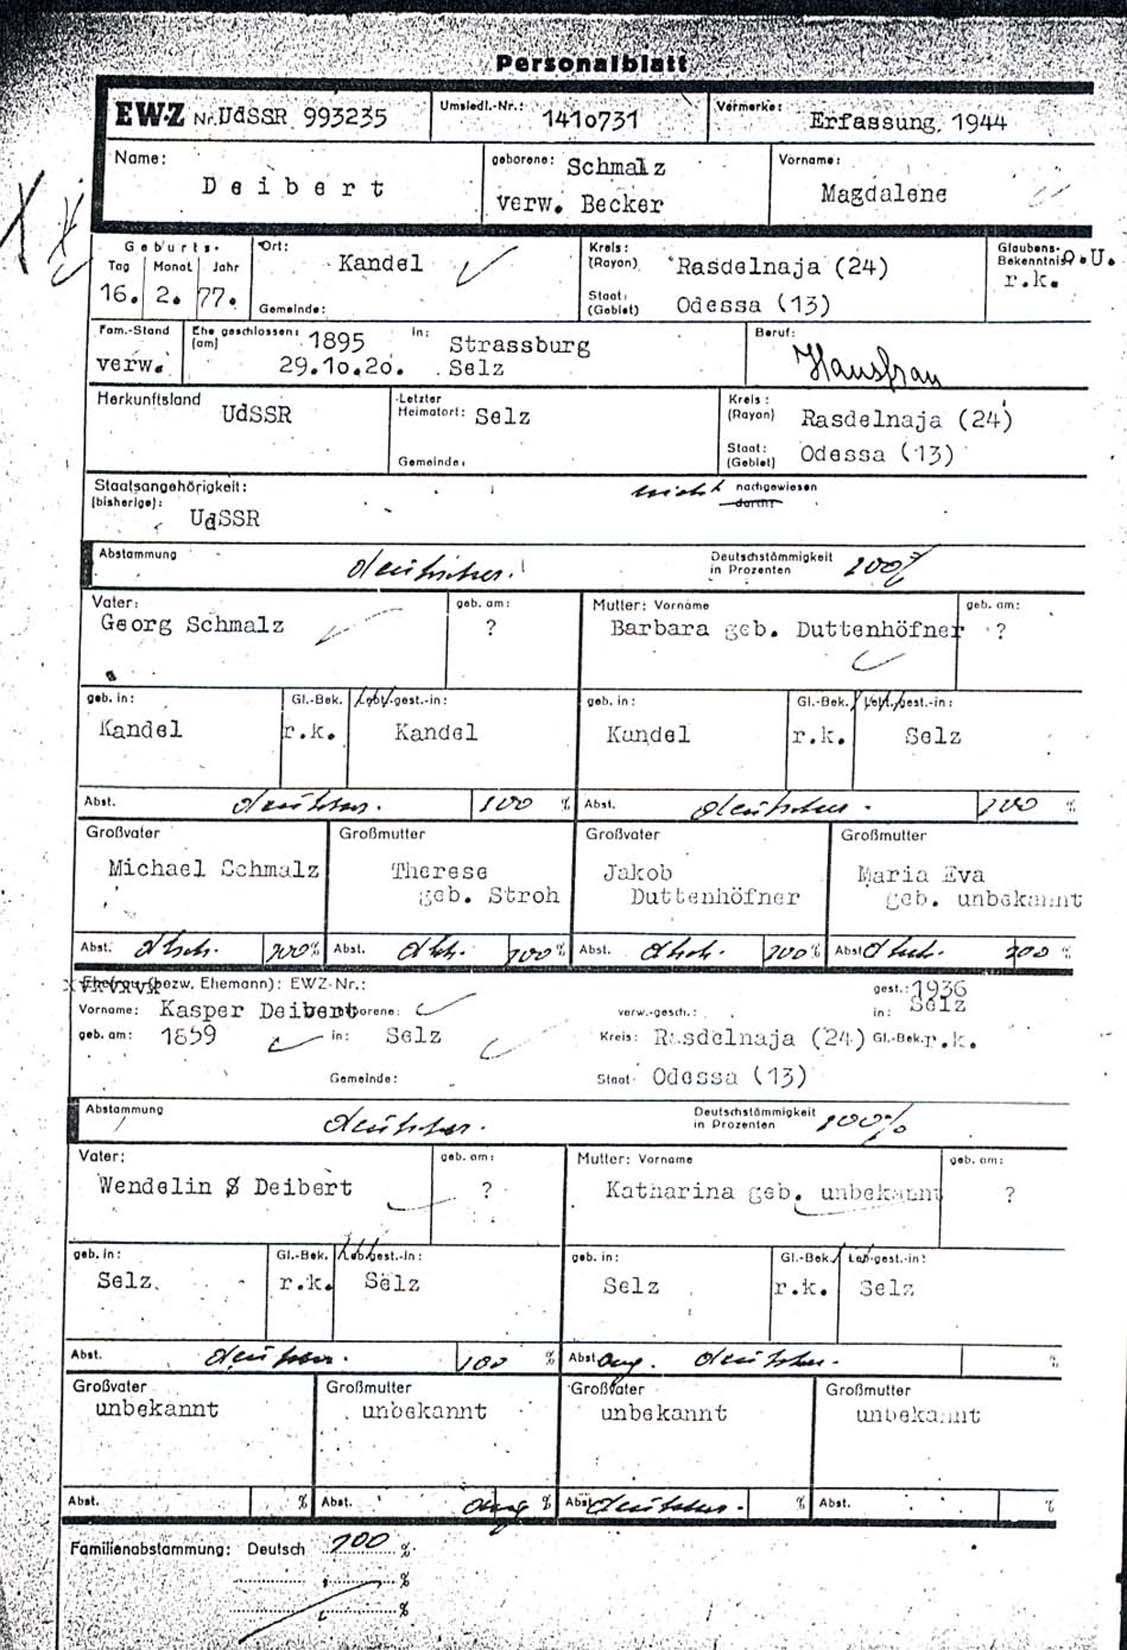 Personalblatt
EWZ Nr. UdSSR 993235 Umsiedl.-Nr.: 1410731 Vermerke: Erfassung, 1944
Name: geborene: Schmalz Vorname:
Deibert verw. Becker Magdalene
Geburts- Ort: Kreis: Glaubens-
Tag Monat Jahr Kandel (Rayon) Rasdelnaja (24) Bekenntnis: o.U.
16. 2. 77. Gemeinde: Staat: (Gebiet) Odessa (13) r.k.
Fam.-Stand Ehe geschlossen: 1895 in: Strassburg Beruf:
verw. (am) 29.10.20. Selz Hausfrau
Herkunftsland UdSSR Letzter Heimatort: Selz Kreis: (Rayon) Rasdelnaja (24)
Gemeinde: Staat: (Gebiet) Odessa (13)
Staatsangehörigkeit: nicht nachgewiesen
(bisherige): UdSSR durch:
Abstammung deutscher. Deutschstämmigkeit in Prozenten 100%
Vater: geb. am: Mutter: Vorname geb. am:
Georg Schmalz ? Barbara geb. Duttenhöfner ?
geb. in: Gl.-Bek. Lebt/gest.-in: geb. in: Gl.-Bek. Lebt/gest.-in:
Kandel r.k. Kandel Kandel r.k. Selz
Abst. deutscher. 100 % Abst. deutscher. 100 %
Großvater Großmutter Großvater Großmutter
Michael Schmalz Therese Jakob Maria Eva
geb. Stroh Duttenhöfner geb. unbekannt
Abst. dtsch. 100% Abst. dtsch. 100% Abst. dtsch. 100% Abst. dtsch. 100 %
Ehefrau (bezw. Ehemann): EWZ-Nr.: gest.: 1936
Vorname: Kasper Deibert geborene: verw.-gesch.: in: Selz
geb. am: 1859 in: Selz Kreis: Rasdelnaja (24) Gl.-Bek. r.k.
Gemeinde: Staat: Odessa (13)
Abstammung deutscher. Deutschstämmigkeit in Prozenten 100%
Vater: geb. am: Mutter: Vorname geb. am:
Wendelin Deibert ? Katharina geb. unbekannt ?
geb. in: Gl.-Bek. Leb/gest.-in: geb. in: Gl.-Bek. Leb-gest.-in:
Selz. r.k. Selz Selz r.k. Selz
Abst. deutscher. 100 % Abst. ang. deutscher. %
Großvater Großmutter Großvater Großmutter
unbekannt unbekannt unbekannt unbekannt
Abst. % Abst. ang % Abst. deutscher. % Abst. %
Familienabstammung: Deutsch 100 %
%
%